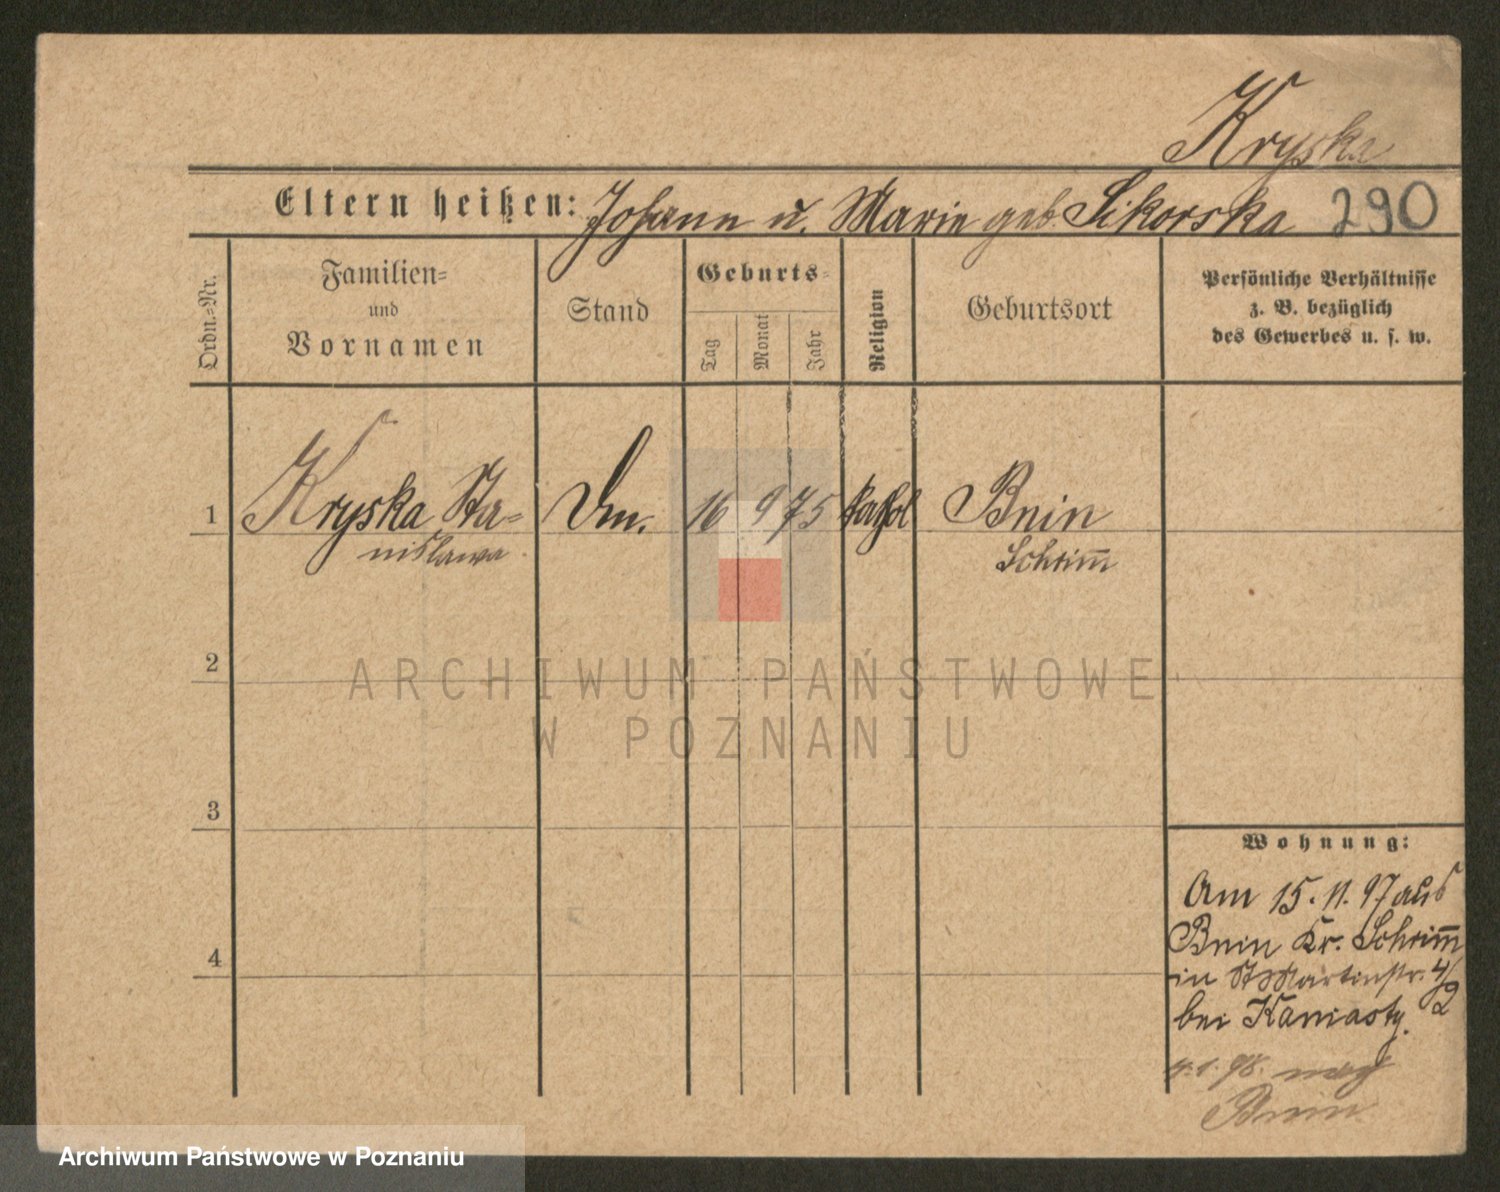 Kryska
Eltern heißen: Johann u. Marie geb. Sikorska 290
Ordn.-Nr.
Familien-
und
Vornamen
Stand
Geburts-
Tag
Monat
Jahr
Religion
Geburtsort
Persönliche Verhältnisse
z. B. bezüglich
des Gewerbes u. s. w.
1 Kryska Sta- 16 9 75 kathol Bnin
nislawa Schrim̅
2
ARCHIWUM PAŃSTWOWE
W POZNANIU
3
Wohnung:
Am 15. 11. 97 aus
Bnin Kr. Schrim̅
4
in St Martinstr. 4/2
bei Kaniasty.
4. 1. 98. nach
Bnin
Archiwum Państwowe w Poznaniu